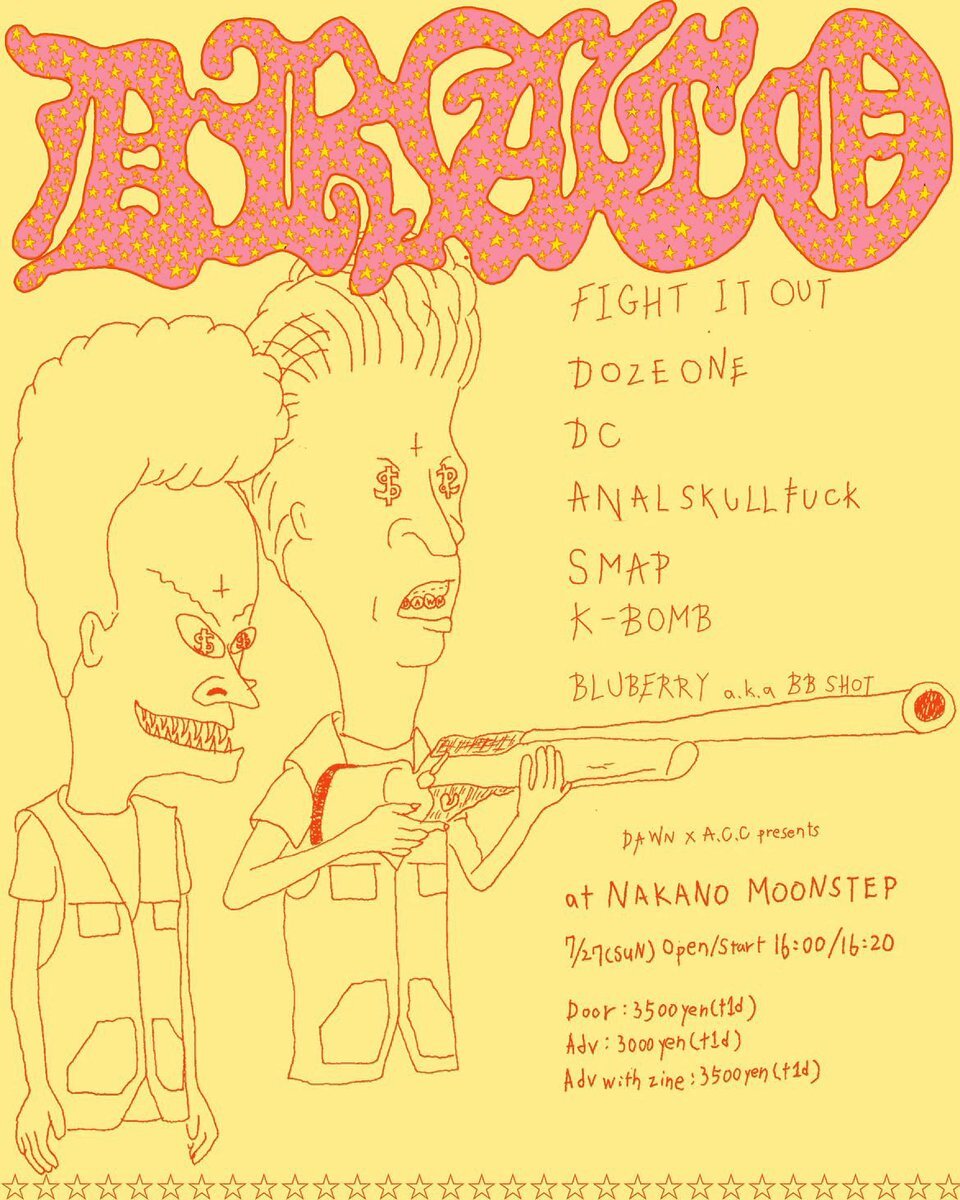 FIGHT IT OUT
DOZEONE
DC
ANALSKULLFUCK
SMAP
K-BOMB
BLUBERRY a.k.a BB SHOT
DAWN
DAWN x A.C.C presents
at NAKANO MOONSTEP
7/27(SUN) Open/Start 16:00/16:20
Door : 3500yen(+1d)
Adv : 3000yen(+1d)
Adv with zine : 3500yen(+1d)